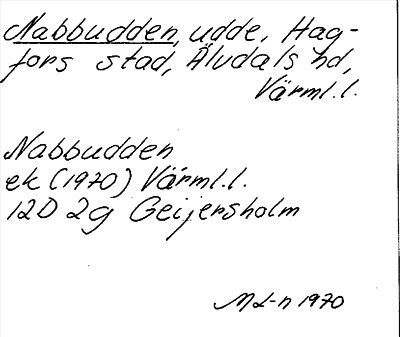 Nabbudden, udde, Hag-
fors stad, Älvdals hd,
Värml.l.
Nabbudden
ek (1970) Värml.l.
12D 2g Geijersholm
ML-n 1970